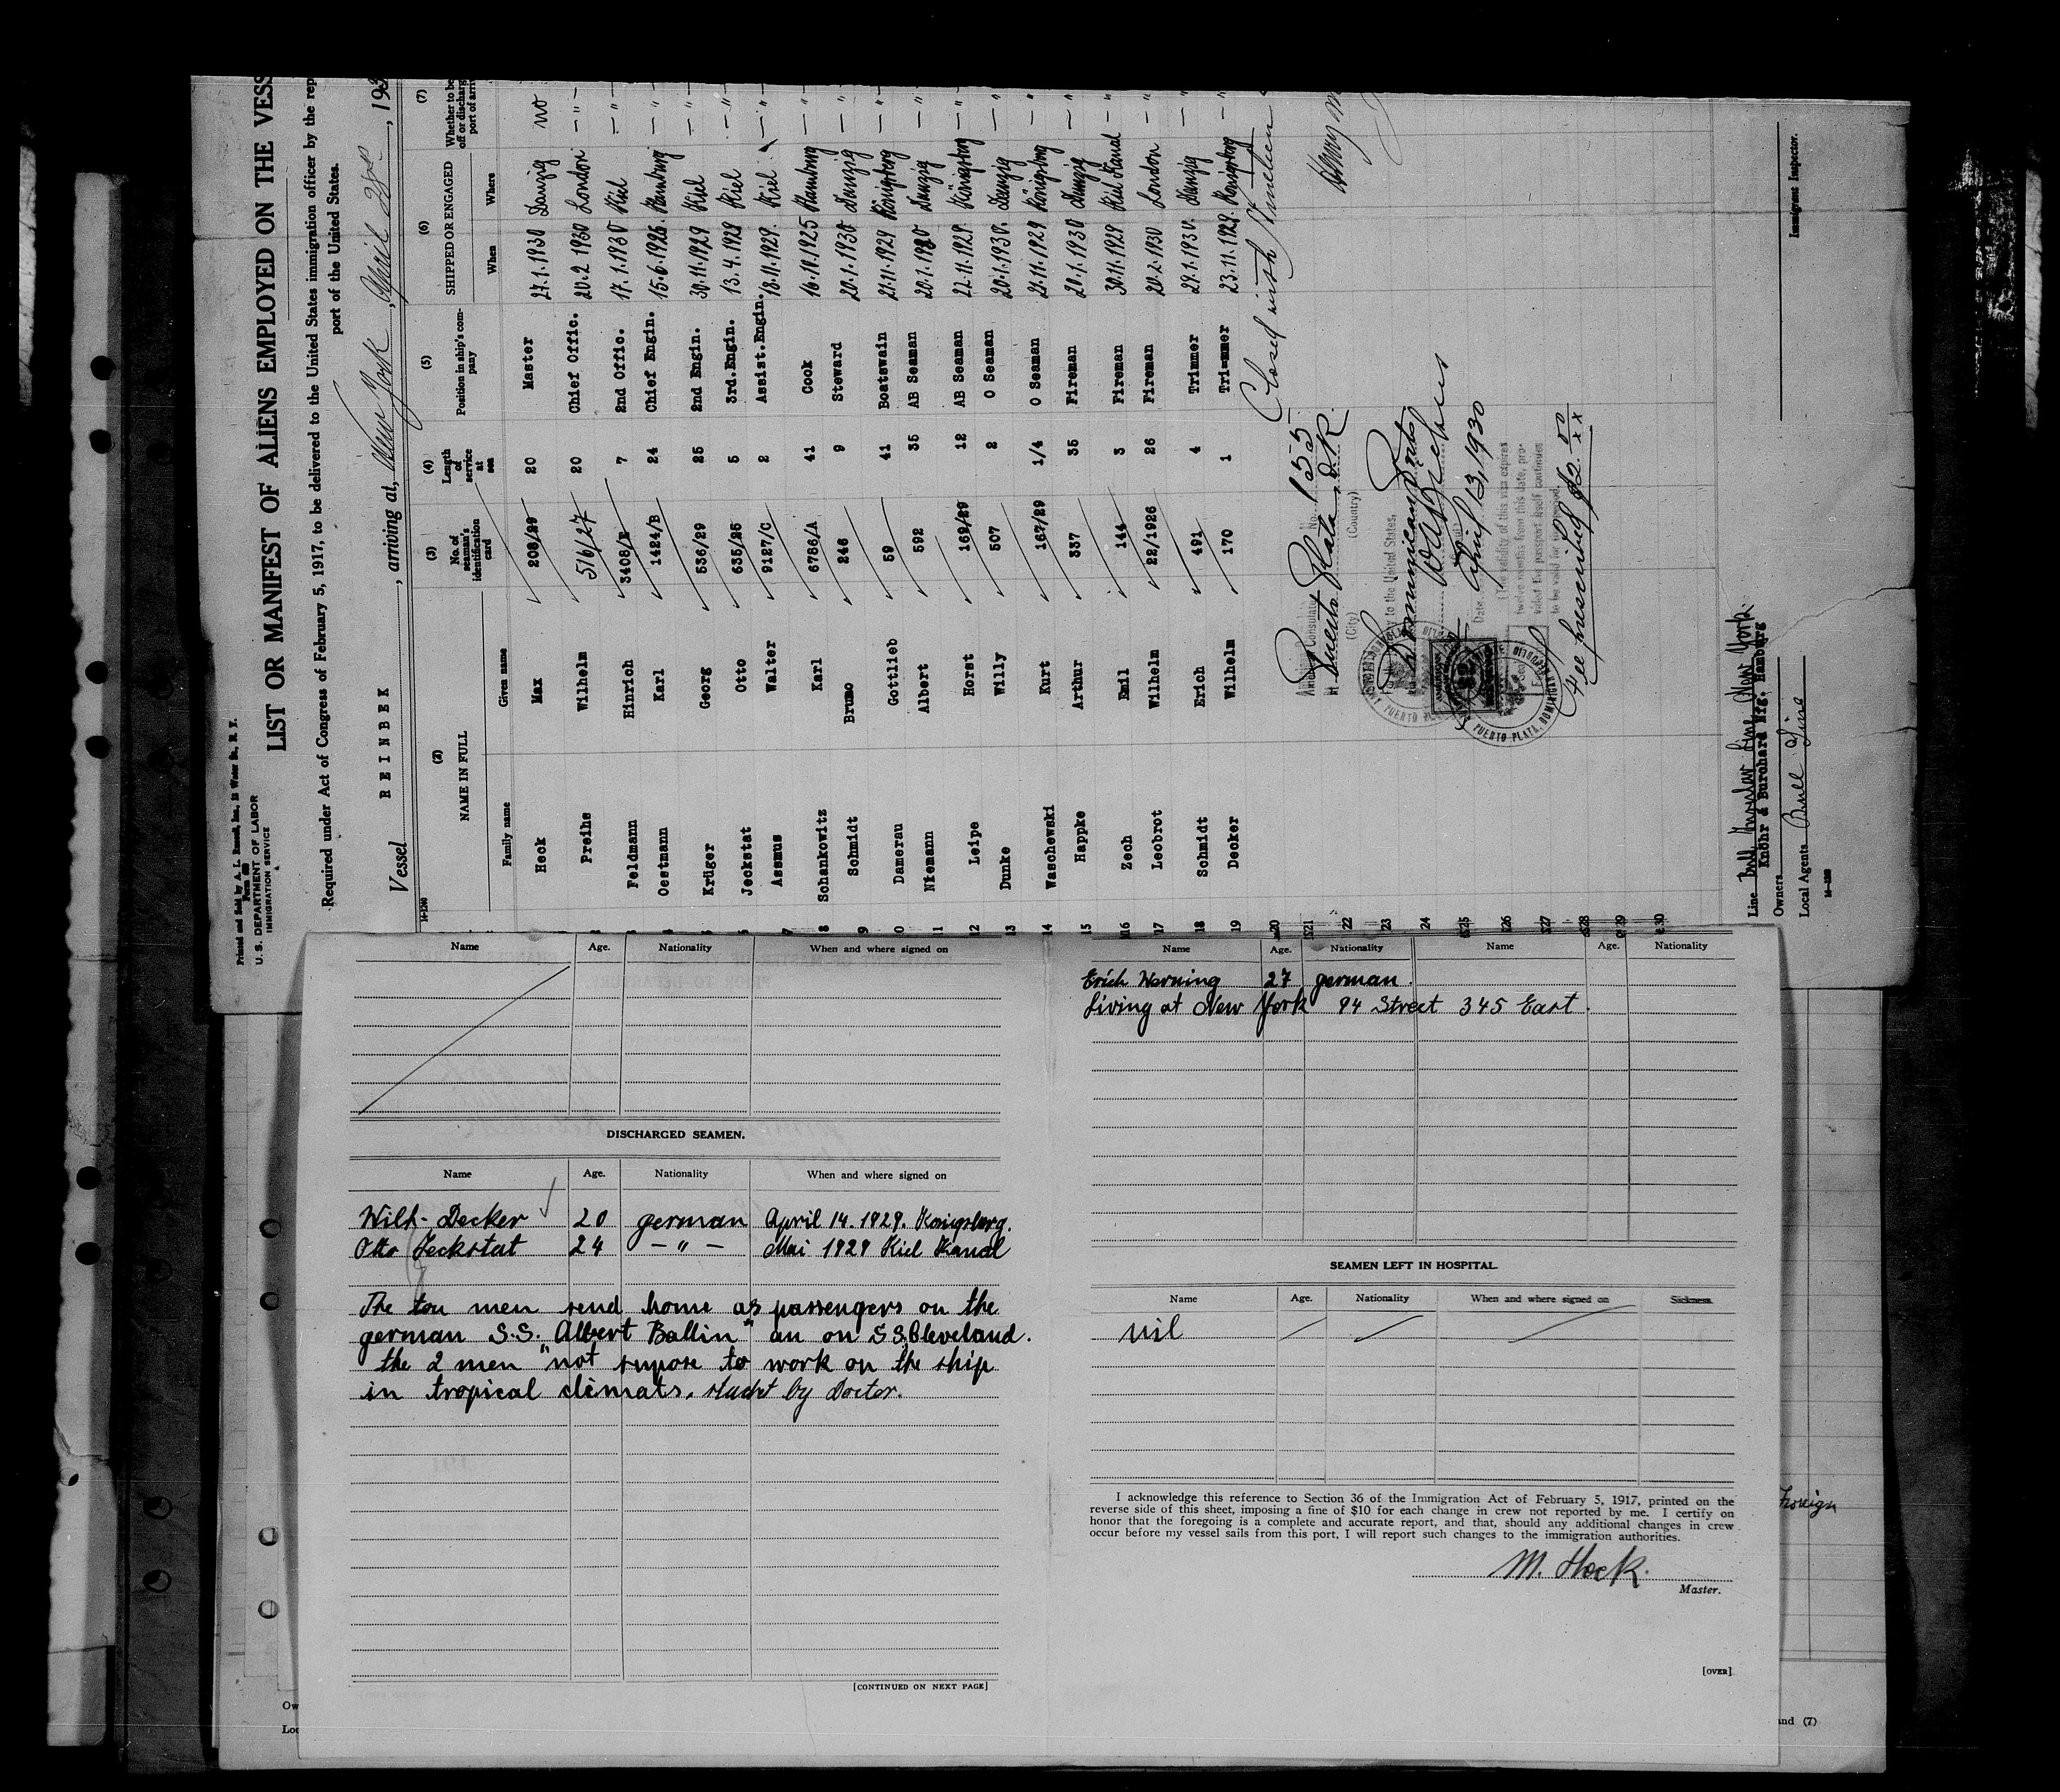 Printed and Sold by A. L. Russell, Inc., 12 Water St., N. Y.
Form 689
U. S. DEPARTMENT OF LABOR
IMMIGRATION SERVICE
LIST OR MANIFEST OF ALIENS EMPLOYED ON THE VESS
Required under Act of Congress of February 5, 1917, to be delivered to the United States immigration officer by the rep
port of the United States.
Vessel REINBEK, arriving at, New York, April, 193
14-1240
(2) (3) (4) (5) (6) (7)
NAME IN FULL No. of seaman's identification card Length of service at sea Position in ship's company SHIPPED OR ENGAGED Whether to be off or discharg port of arri
Family name Given name When Where
Heck Max 208/29 20 Master 27.1.1930 Danzig no
Preihs Wilhelm 516/27 20 Chief Offic. 20.2 1930 London — " —
Feldmann Hinrich 3408/E 7 2nd Offic. 17.1.1930 Kiel — " —
Oestmann Karl 1424/B 24 Chief Engin. 15.6.1926 Hamburg — " —
Krüger Georg 536/29 25 2nd Engin. 30.11.1929 Kiel — " —
Jeckstat Otto 635/25 5 3rd.Engin. 13.4.1929 Kiel — " —
Assmus Walter 9127/C 2 Assist.Engin. 18.11.1929. Kiel — " —
8 Schankowitz Karl 6786/A 41 Cook 16.10.1925 Hamburg — " —
9 Schmidt Bruno 246 9 Steward 20.1.1930 Danzig — " —
10 Damerau Gottlieb 59 41 Boatswain 21.11.1929 Königsberg — " —
11 Niemann Albert 592 35 AB Seaman 20.1.1930 Danzig — " —
12 Leipe Horst 162/29 12 AB Seaman 22.11.1929. Königsberg — " —
13 Dunke Willy 507 2 O Seaman 20.1.1930. Danzig — " —
14 Waschewski Kurt 167/29 1/4 O Seaman 21.11.1929 Königsberg — " —
15 Happke Arthur 337 35 Fireman 20.1.1930 Danzig — " —
16 Zech Emil 144 3 Fireman 30.11.1929 Kiel Kanal — " —
17 Leobrot Wilhelm 22/1926 26 Fireman 20.2.1930 London — " —
18 Schmidt Erich 491 4 Trimmer 29.1.1930. Danzig — " —
19 Decker Wilhelm 170 1 Trimmer 23.11.1929. Königsberg — " —
20
21
22
23
24
25
26
27
28
29
30
Closed with
No. 155
Puerto Plata, D.R.
(City) (Country)
to the United States,
Dominican Republic
Date April 13, 1930
(The validity of this visa expires
twelve months from this date, pro-
vided the passport itself continues
to be valid for that period.
Fee prescribed $2.00
PUERTO PLATA, DOMINICAN
Line Bull Insular Line New York
Owners Knöhr & Burchard Nfg. Hamburg
Local Agents Bull Line
Immigrant Inspector.
Name Age. Nationality When and where signed on
DISCHARGED SEAMEN.
Name Age. Nationality When and where signed on
Wilh- Decker 20 german April 14. 1929. Konigsberg.
Otto Jeckstat 24 — " — Mai 1929 Kiel Kanal
The tou men send home as passengers on the
german S.S. Albert Ballin" an on S.S. Cleveland.
the 2 men "not supose to work on the ship
in tropical climats. by Doctor.
[CONTINUED ON NEXT PAGE]
Name Age. Nationality Name Age. Nationality
Erich Werning 27 german.
Living at New York 94 Street 345 East.
SEAMEN LEFT IN HOSPITAL.
Name Age. Nationality When and where signed on Sickness.
nil
I acknowledge this reference to Section 36 of the Immigration Act of February 5, 1917, printed on the
reverse side of this sheet, imposing a fine of $10 for each change in crew not reported by me. I certify on
honor that the foregoing is a complete and accurate report, and that, should any additional changes in crew
occur before my vessel sails from this port, I will report such changes to the immigration authorities.
M. Heck.
Master.
[OVER]
Foreign
and (7)
Ow
Loc